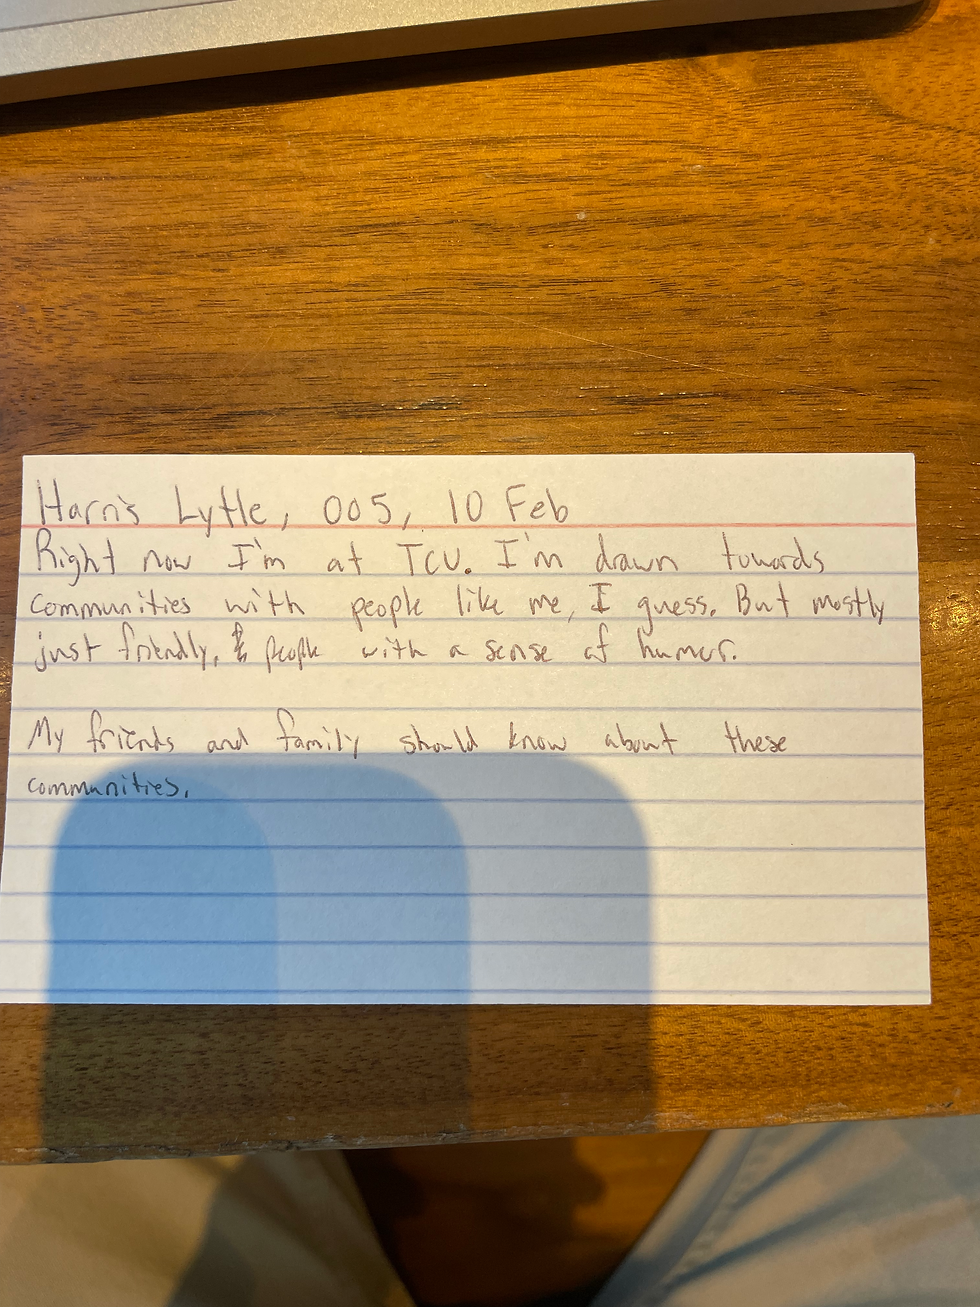 Harris Lytle, 005, 10 Feb
Right now I'm at TCU. I'm drawn towards
communities with people like me, I guess. But mostly
just friendly, & people with a sense of humor.
My friends and family should know about these
communities.